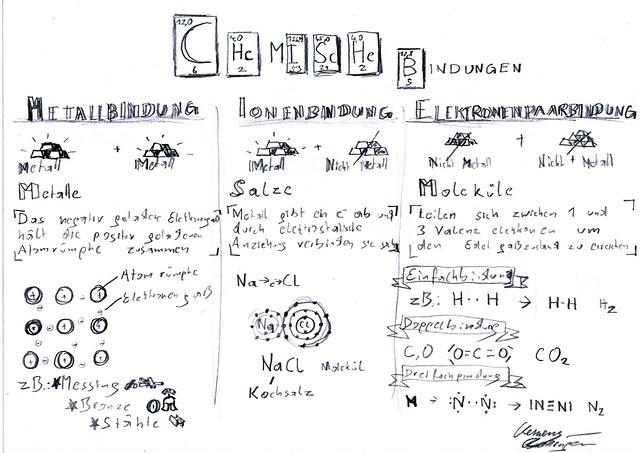 12,0 C 6 4,0 He 2 M I 53 Sc 21 4,0 He 2 B 5 INDUNGEN
METALLBINDUNG
Metall + Metall
Metalle
Das negativ geladene
hält die positiv geladenen
Atomrümpfe zusammen
Atomrümpfe
Elektronengas
zB.: *Messing
*Bronze
*Stähle
IONENBINDUNG
Metall + Nicht Metall
Salze
Metall gibt ein e⁻ ab und
durch elektrostatische
Anziehung verbinden sie sich
Na → Cl
Na Cl
NaCl Molekül
Kochsalz
ELEKTRONENPAARBINDUNG
Nicht Metall + Nicht Metall
Moleküle
teilen sich zwischen 1 und
3 Valenz elektronen um
den Edelgaszustand zu erreichen
Einfachbindung
zB.: H··H → H-H H₂
Doppelbindung
C,O O=C=O CO₂
Dreifachbindung
N → N N → |N≡N| N₂
Clemens